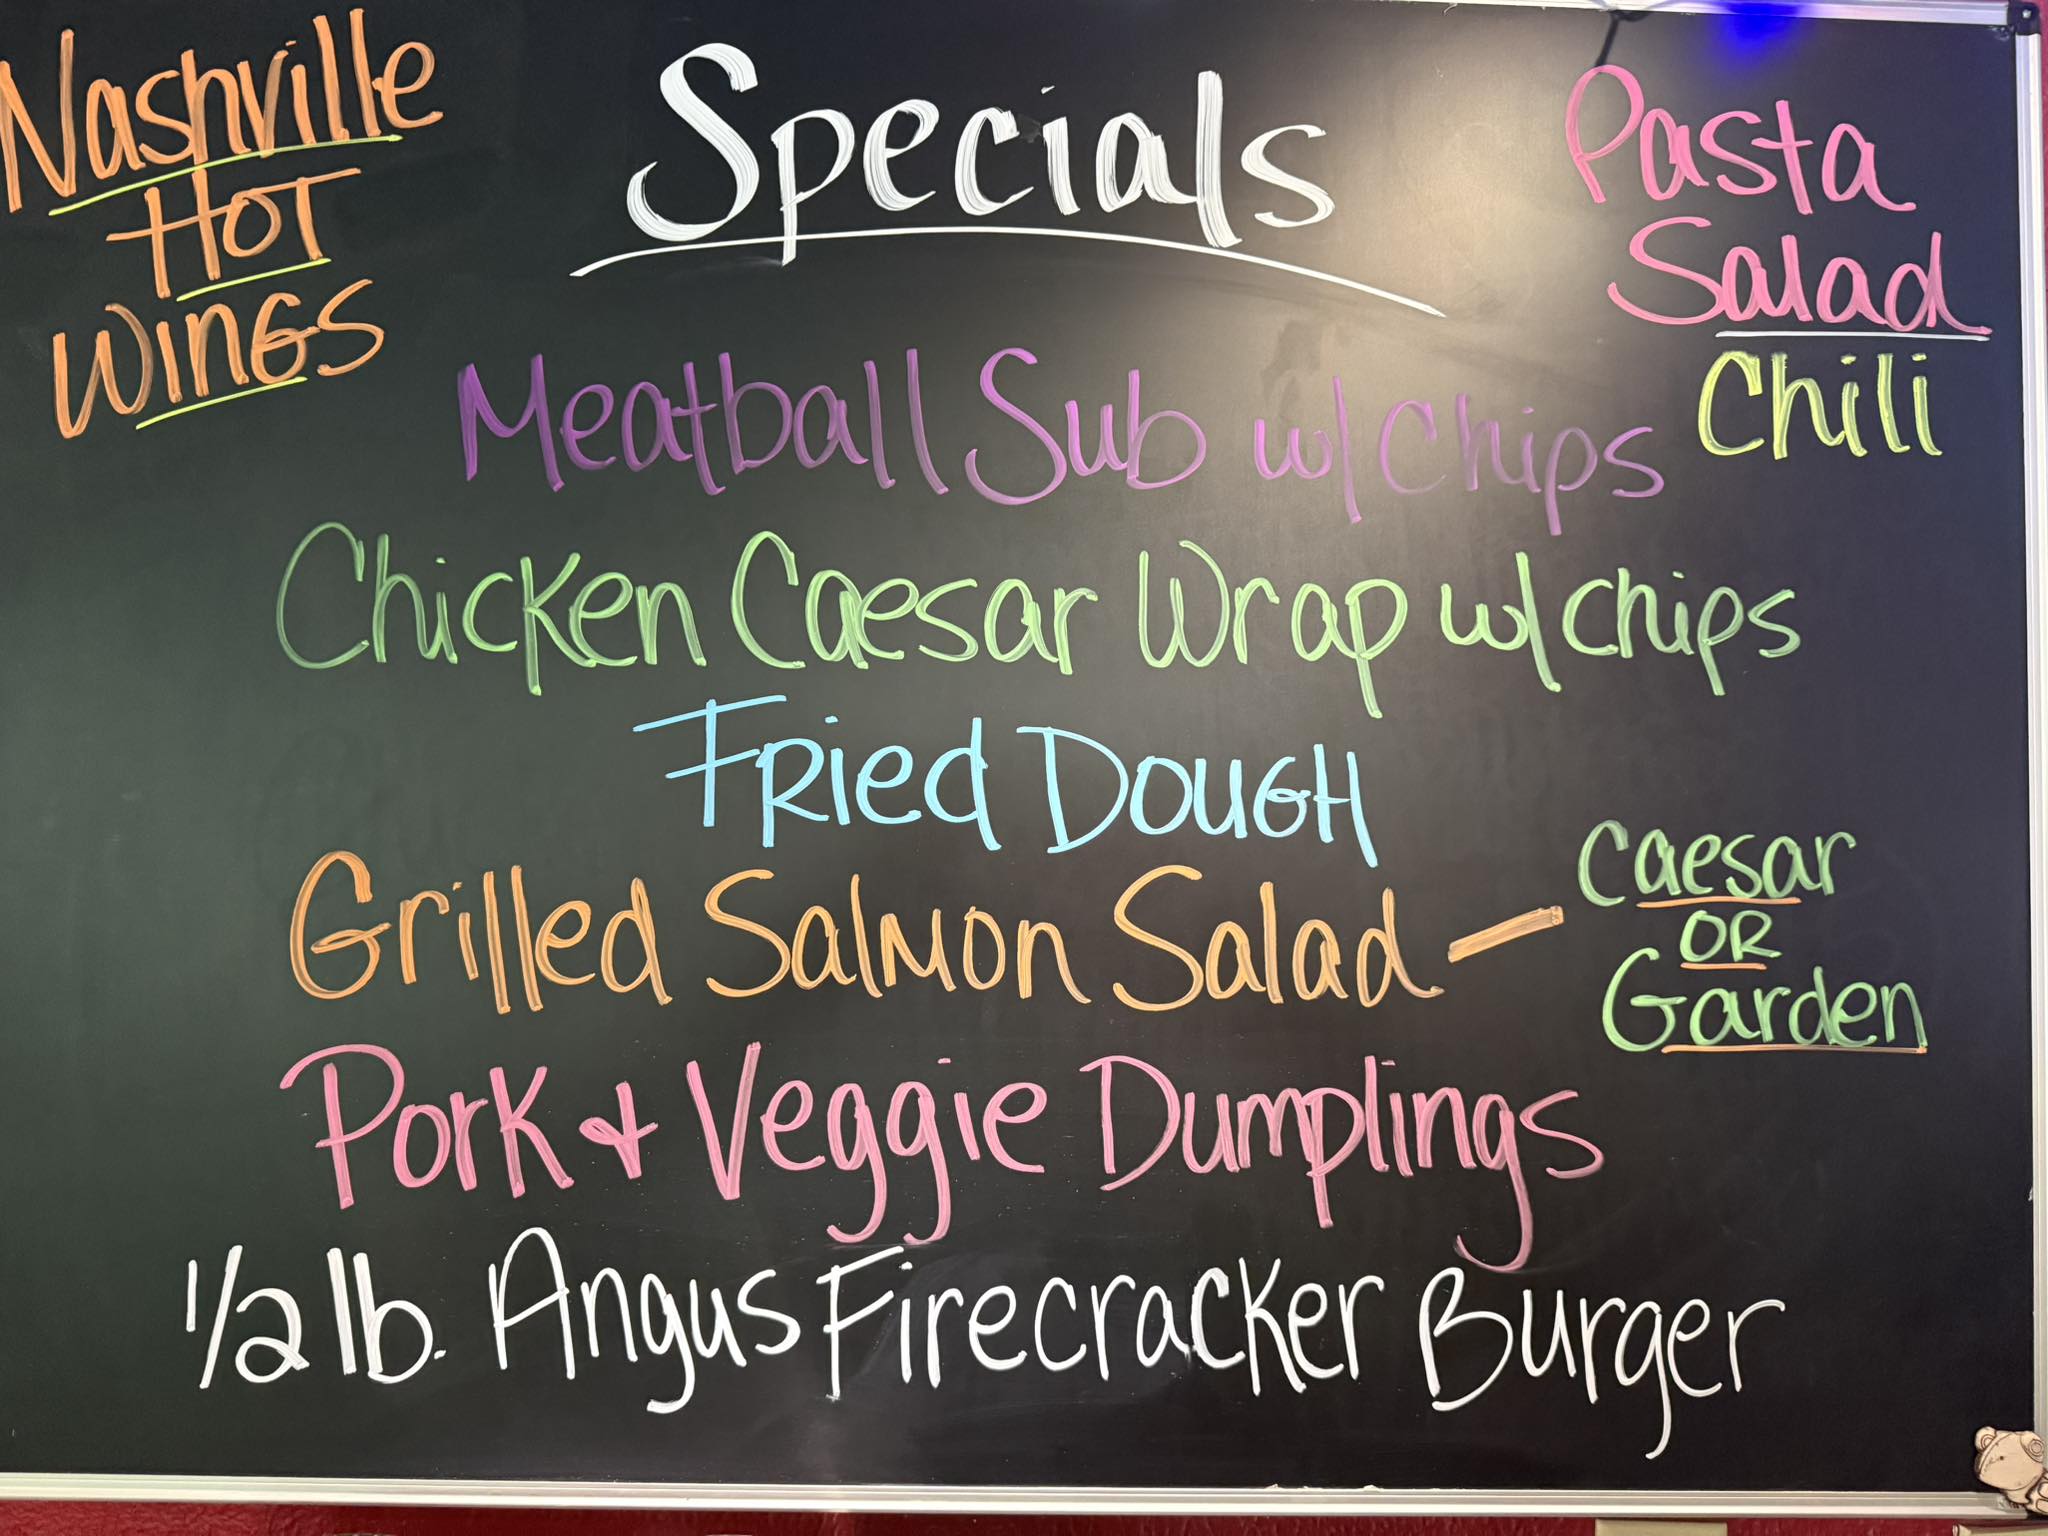 Nashville
Hot
Wings
Specials
Pasta
Salad
Chili
Meatball Sub w/ Chips
Chicken Caesar Wrap w/ chips
Fried Dough
Grilled Salmon Salad -
Caesar
OR
Garden
Pork & Veggie Dumplings
1/2 lb. Angus Firecracker Burger